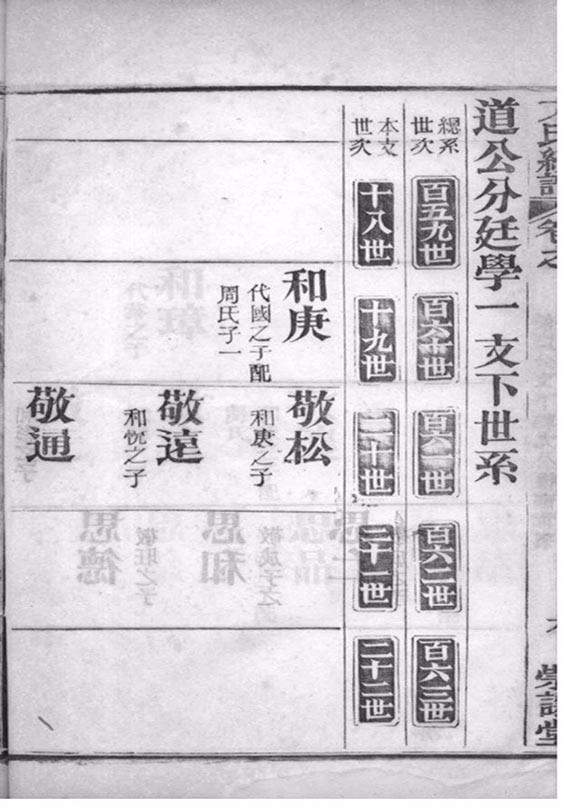 道公分廷學一支下世系
總系世次
百五九世
百六十世
百六一世
百六二世
百六三世
本支世次
十八世
十九世
二十世
二十一世
二十二世
和庚
代國之子配
周氏子一
敬松
和庚之子
敬遠
和忱之子
敬通